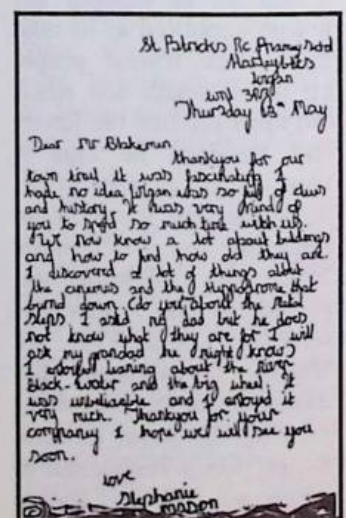 St Patricks Rc Primary School
Hardybutts
Wigan
WN1 3RZ
Thursday 13th May
Dear Mr Blakeman
thankyou for our
town trail it was fascinating I
had no idea Wigan was so full of clues
and history. It was very kind of
you to spend so much time with us.
We now know a lot about buildings
and how to find how old they are.
I discovered a lot of things about
the cinemas and the Hippodrome that
burnd down (do you about the metal
steps I askd my dad but he does
not know what they are for I will
ask my grandad he might know)
I enjoyed learing about the river
Black-water and the big wheel. It
was unbelievable and I enjoyed it
very much. Thankyou for your
company I hope we will see you
soon.
love
Stephanie
mason